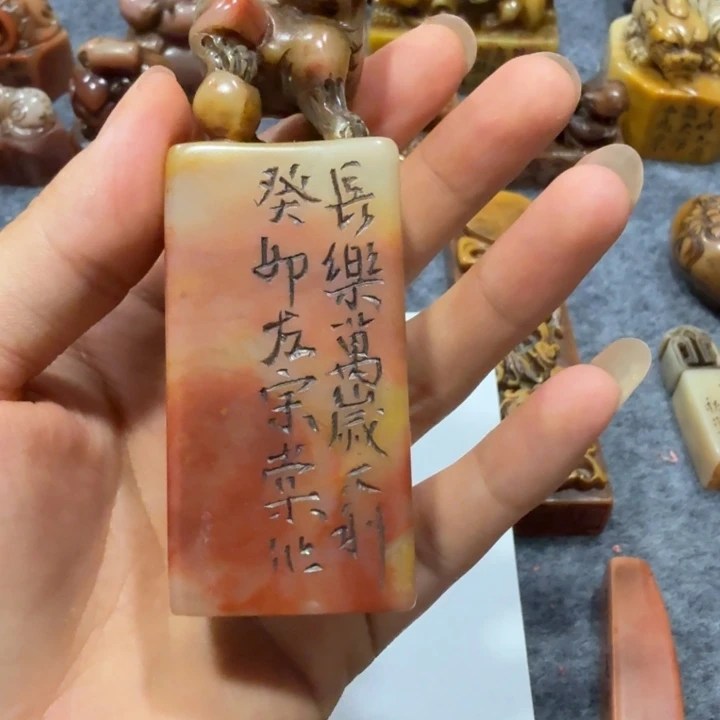 長樂萬歲大利
癸卯友宗棠作